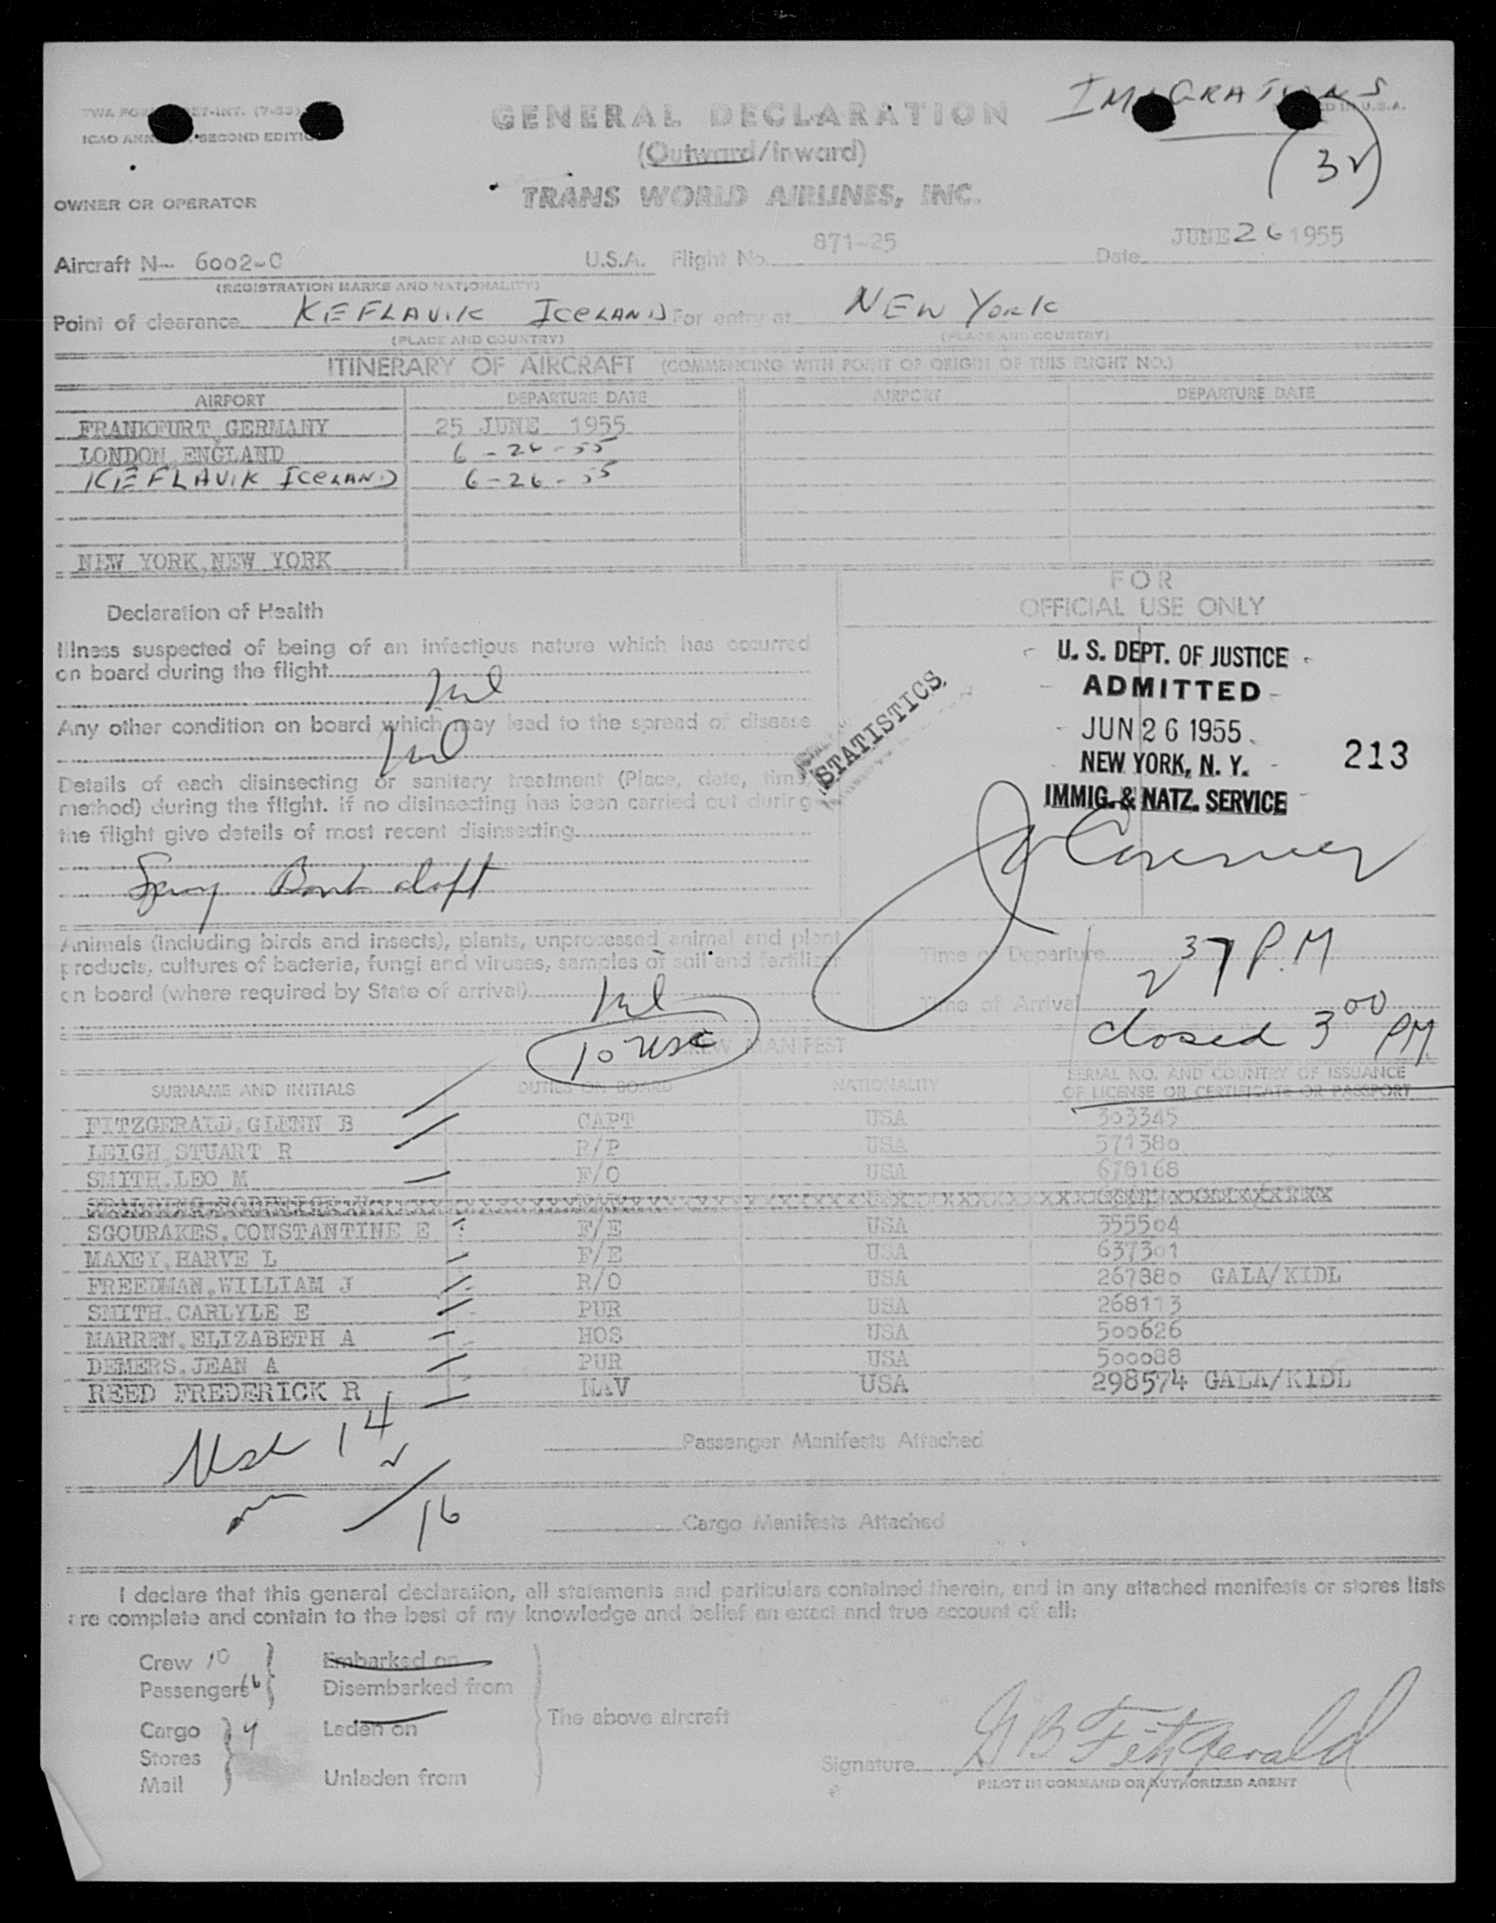 IMMIGRATIONS
GENERAL DECLARATION
(Outward/Inward)
(32)
TRANS WORLD AIRLINES, INC.
OWNER OR OPERATOR
Aircraft N- 6002-C U.S.A. Flight No. 871-25 Date JUNE 26 1955
(REGISTRATION MARKS AND NATIONALITY)
Point of clearance KEFLAVIK ICELAND For entry at NEW YORK
(PLACE AND COUNTRY) (PLACE AND COUNTRY)
ITINERARY OF AIRCRAFT (COMMENCING WITH POINT OF ORIGIN OF THIS FLIGHT NO.)
AIRPORT DEPARTURE DATE AIRPORT DEPARTURE DATE
FRANKFURT, GERMANY 25 JUNE 1955
LONDON, ENGLAND 6-26-55
KEFLAVIK ICELAND 6-26-55
NEW YORK, NEW YORK
FOR
OFFICIAL USE ONLY
Declaration of Health
Illness suspected of being of an infectious nature which has occurred
on board during the flight
Nil
Any other condition on board which may lead to the spread of disease
Nil
Details of each disinsecting or sanitary treatment (Place, date, time,
method) during the flight. If no disinsecting has been carried out during
the flight give details of most recent disinsecting
U. S. DEPT. OF JUSTICE
ADMITTED
JUN 26 1955
NEW YORK, N. Y.
IMMIG. & NATZ. SERVICE
213
STATISTICS
Animals (including birds and insects), plants, unprocessed animal and plant
products, cultures of bacteria, fungi and viruses, samples of soil and fertilizer
on board (where required by State of arrival)
Nil
Time of Departure
2 37 P.M
Time of Arrival
closed 3 00 PM
10 USC
CREW MANIFEST
SURNAME AND INITIALS DUTIES ON BOARD NATIONALITY SERIAL NO. AND COUNTRY OF ISSUANCE
OF LICENSE OR CERTIFICATE OR PASSPORT
FITZGERALD, GLENN B CAPT USA 303345
LEIGH, STUART R R/P USA 571380
SMITH, LEO M F/O USA 678168
SGOURAKES, CONSTANTINE E F/E USA 355504
MAXEY, HARVE L F/E USA 637301
FREEDMAN, WILLIAM J R/O USA 267880 GALA/KIDL
SMITH, CARLYLE E PUR USA 268113
MARREN, ELIZABETH A HOS USA 500626
DEMERS, JEAN A PUR USA 500088
REED FREDERICK R NAV USA 298574 GALA/KIDL
14
Passenger Manifests Attached
16
Cargo Manifests Attached
I declare that this general declaration, all statements and particulars contained therein, and in any attached manifests or stores lists
are complete and contain to the best of my knowledge and belief an exact and true account of all:
Crew 10 Embarked on
Passengers 16 Disembarked from
The above aircraft
Cargo Laden on
Stores
Mail Unladen from
Signature G B Fitzgerald
PILOT IN COMMAND OR AUTHORIZED AGENT